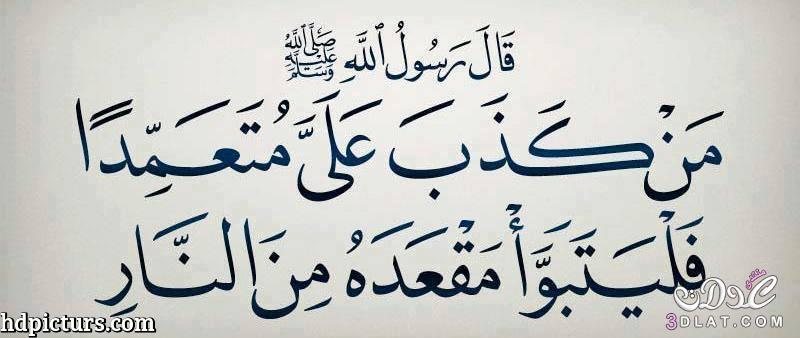 قَالَ رَسُولُ اللَّهِ ﷺ
مَنْ كَذَبَ عَلَيَّ مُتَعَمِّدًا
فَلْيَتَبَوَّأْ مَقْعَدَهُ مِنَ النَّارِ
منتدى عدلات
3DLAT.COM
hdpicturs.com